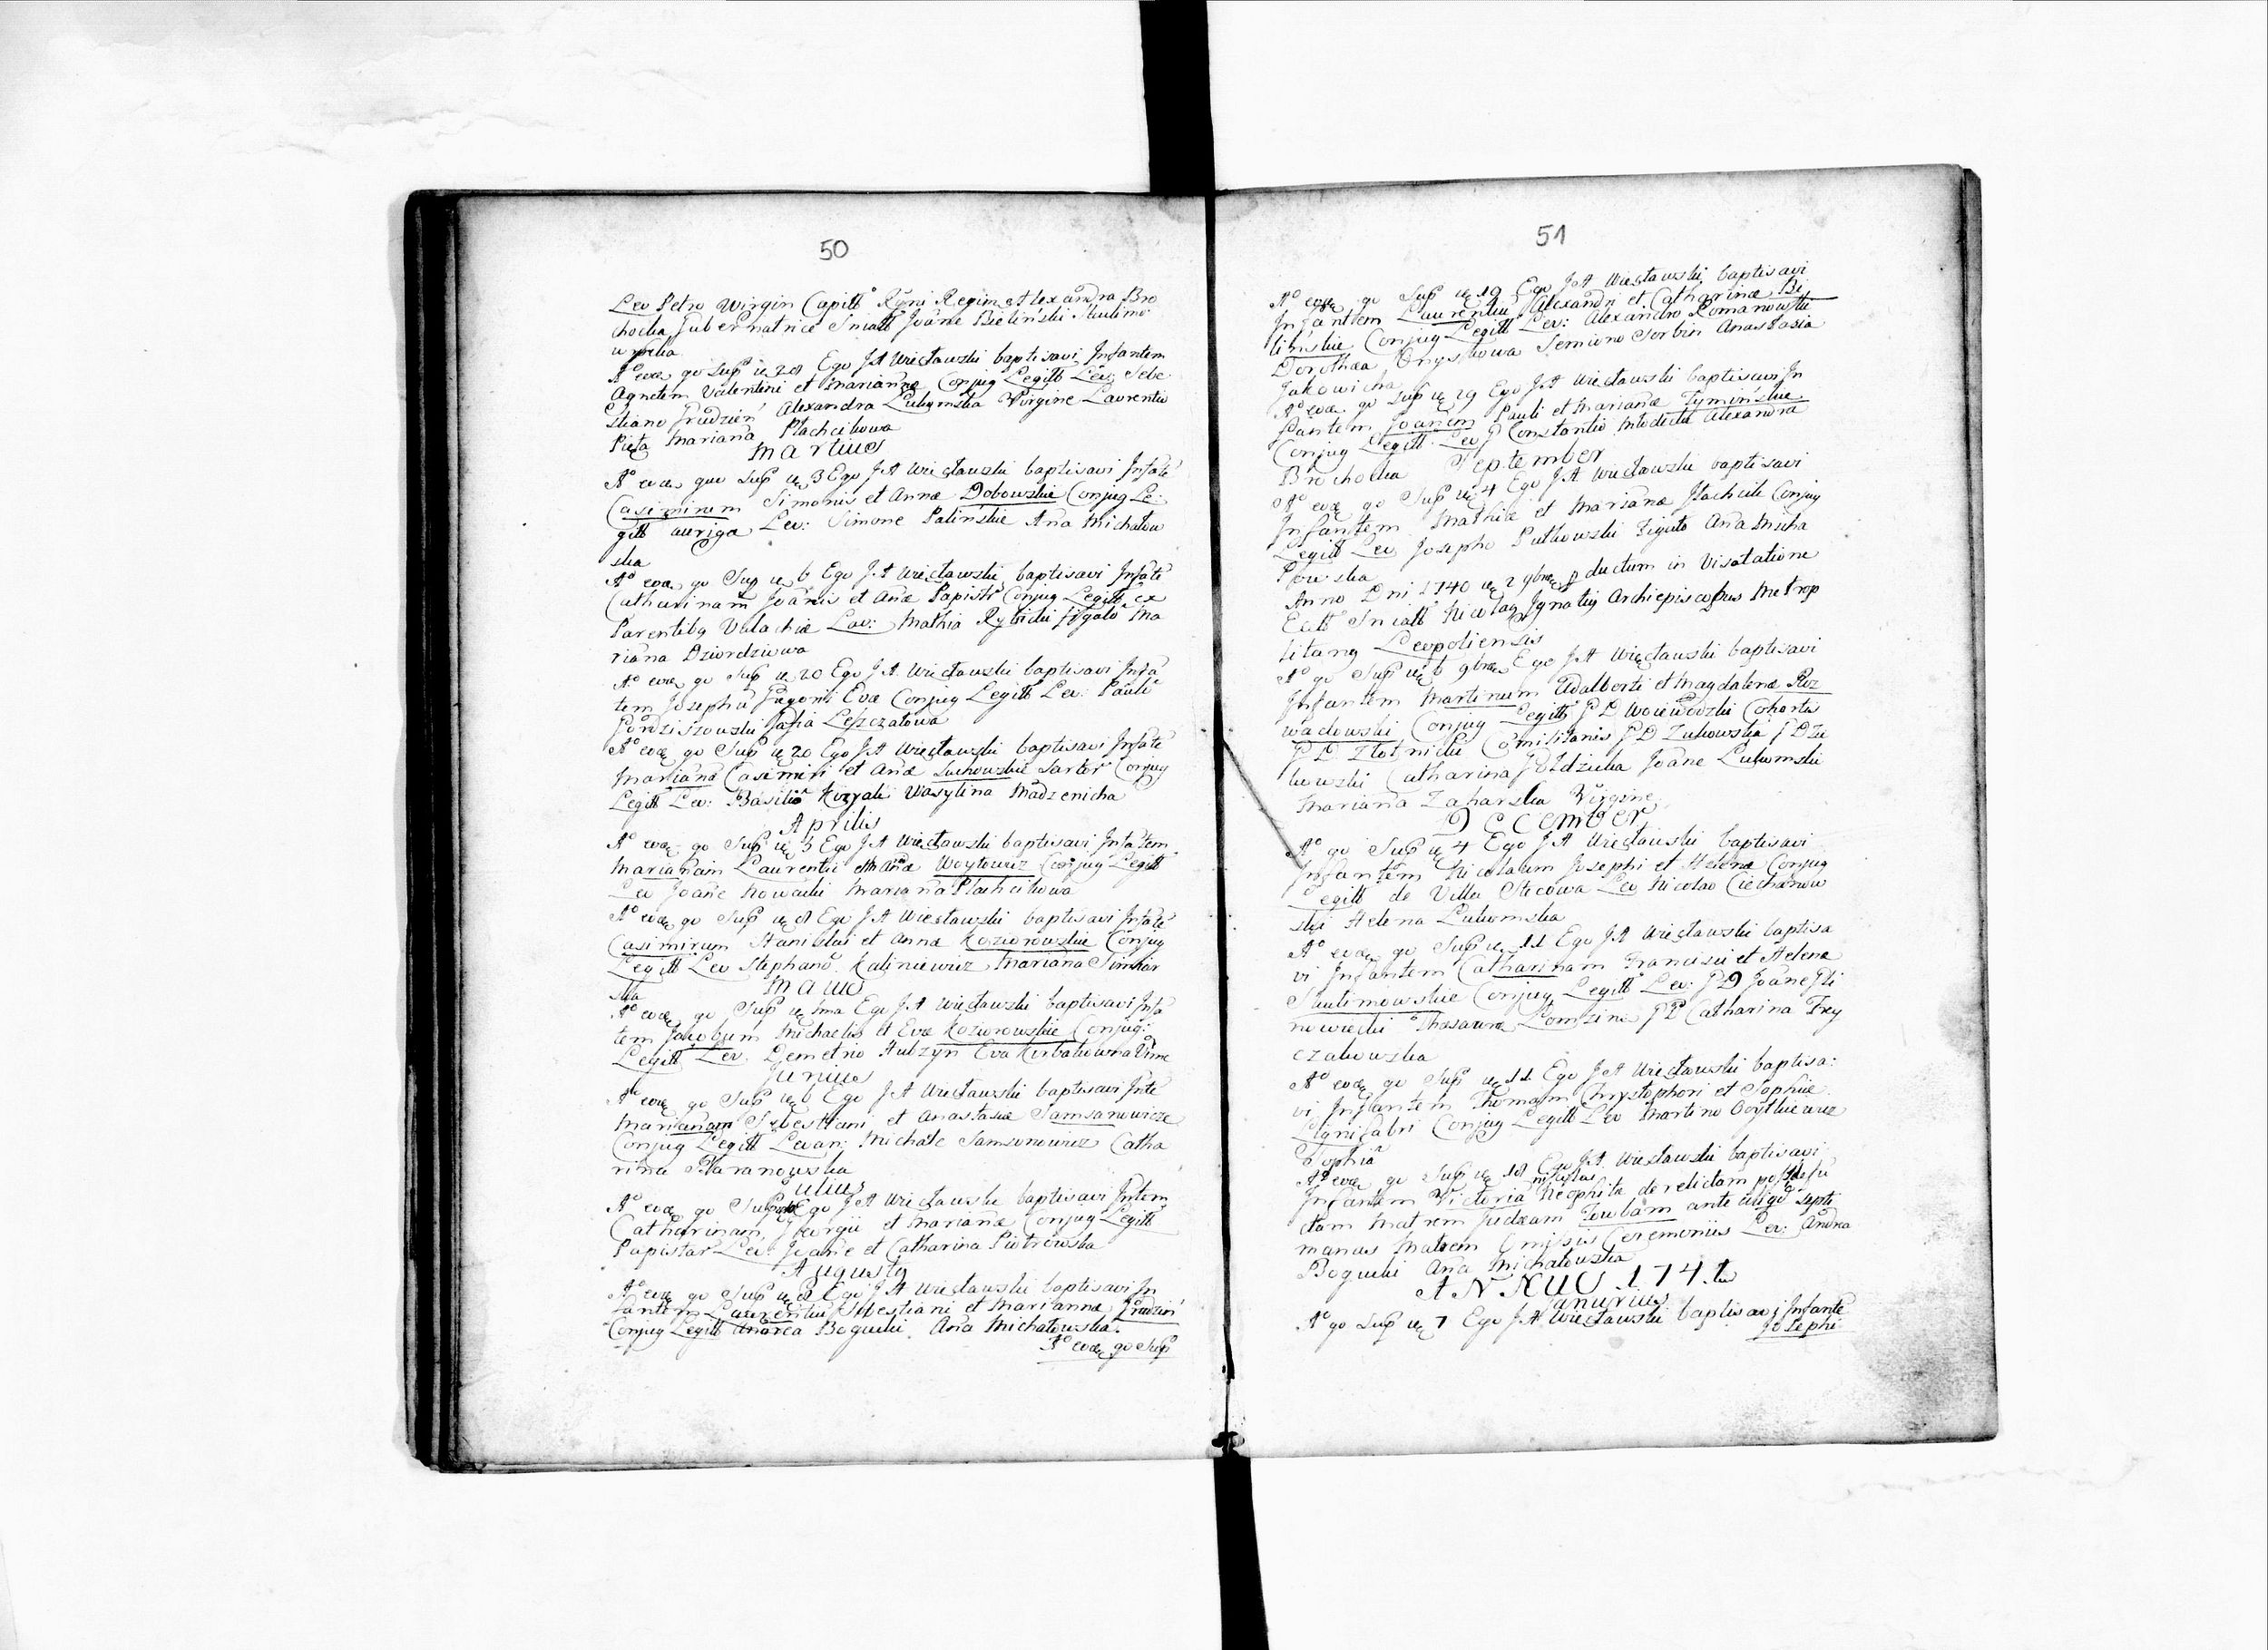 50
Leo Petro Virgin Capitt Rgni Regim Alexandra Bro
chocka Gubernatrice Sniatt Joane Bielinski
A° eodē qo Sup ie 28 Ego J A Więcławski baptisavi Infantem
Agnetem Valentini et Marianna Conjug Legitt Lev: Seba
stiano Grudzien Alexandra Lukomska Virgine Laurentio
Pięta Mariana Plachcikowa
Martius
A° eodē quo Sup ie 3 Ego J A Więcławski baptisavi Infatē
Casimirum Simonis et Annæ Dobowskie Conjug Le:
gitt auriga Lev: Simone Palinskie Ana Michalow
ska
A° eodē qo Sup ie 6 Ego J A Więcławski baptisavi Infatē
Catharinam Joānis et Anæ Papistr Conjug Legitt ex
Parentibq Valachiæ Lev: Mathia Rybicki figulo Ma
riana Dziordziowa
A° eodē qo Sup ie 20 Ego J A Więcławski baptisavi Infā
tem Josephū Gregorii Evæ Conjug Legitt Lev: Paulo
Leszczatowa
A° eodē qo Sup ie 20 Ego J A Więcławski baptisavi Infatē
Marianā Casimiri et Anæ Suchowskie Sartor Conjug
Legitt Lev: Basilio Wasylina Madzenicha
Aprilis
A° eodē qo Sup ie 5 Ego J A Więcławski baptisavi Infatem
Marianam Laurentii Woytowicz Conjug Legitt
Lev Joāne Nowacki Mariana Plachcikowa
A° eodē qo Sup ie 8 Ego J A Więcławski baptisavi Infatē
Casimirum Stanislai et Anna Koziorowskie Conjug
Legitt Lev Stephano Kaliniewicz Mariana
ska
Maius
A° eodē qo Sup ie 1ma Ego J A Więcławski baptisavi Infā
tem Jakobum Michaelis et Evæ Koziorowskie Conjug:
Legitt Lev. Demetrio Hulzyn Eva
Junius
A° eodē qo Sup ie 6 Ego J A Więcławski baptisavi Infte
Marianam Sebestiani et Anastasiæ Samsanowicze
Conjug Legitt Levan: Michale Samsonowicz Catha
rina Haranowska
Julius
A° eodē qo Sup Ego J A Więcławski baptisavi Inftem
Catharinam Georgii et Mariānæ Conjug Legitt
Papistar Lev Joāne et Catharina Piotrowska
Augustq
A° eodē qo Sup ie 8 Ego J A Więcławski baptisavi In
fantem Laurentiu Sebestiani et Marianna Grudzień
Conjug Legitt Andrea Bogucki Ana Michałowska.
A° eodē qo Sup
51
A° eodē qo Sup ie 19 Ego J A Więcławski baptisavi
Infantem Laurentiu Alexandri et Catharinæ Bi
linskie Conjug Legitt Lev: Alexandro Romanowski
Dorothea Onyskowa Semiono Sorbin Anastasia
Jakowicha
A° eodē qo Sup ie 29 Ego J A Więcławski baptisavi In
fantem Joanem Pauli et Marianæ Tyminskie
Conjug Legitt Lev Constantio Młodecki Alexandra
Brochocka
September
A° eodē qo Sup ie 4 Ego J A Więcławski baptisavi
Infantem Mathiæ et Marianæ Plachcik Conjug
Legitt Lev Josepho Putkowski figulo Ana Micha
łowska
Anno Dni 1740 ie 2 9bres p ductum in Visitatione
Eccl Sniatt Nicolaq Ignatiq Archiepiscopus Metrop
litanq Leopoliensis
A° qo Sup ie 6 9bres Ego J A Więcławski baptisavi
Infantem Martinum Adalberti et Magdalenæ Roz
wadowski Conjug Legitt P D Woiewodzki Cohortis
P D Złotnicki Comilitanis P D Zukowska P D Zu
kowski Catharina Joāne Lukomski
Mariana Zaharska Virgine
December
A° qo Sup ie 4 Ego J A Więcławski baptisavi
Infantem Nicolaum Josephi et Helenæ Conjug
Legitt de Villa Stecowa Lev Nicolao Ciechanow
ski Helena Lukomska
A° eodē qo Sup ie 11 Ego J A Więcławski baptisa
vi Infantem Catharinam Francisci et Helenæ
Skulimowskie Conjug Legitt Lev: P D Joāne Gli
nowiecki Thesaura Lomzine P D Catharina Trey
czakowska
A° eodē qo Sup ie 11 Ego J A Więcławski baptisa:
vi Infantem Thomam Chrystophori et Sophiæ
Lignifabri Conjug Legitt Lev Martino Woytkiewicz
Sophiā
A° eodē qo Sup ie 18 Ego J A Więcławski baptisavi
Infantem Victoria Neophita derelictam post defu
ctam Matrem Judæam ante septi
manas Matrem Omissis Ceremoniis Lev: Andrea
Bogucki Ana Michałowska
ANNUS 1741
Januarius
A° qo Sup ie 7 Ego J A Więcławski baptisavi Infante
Josephi